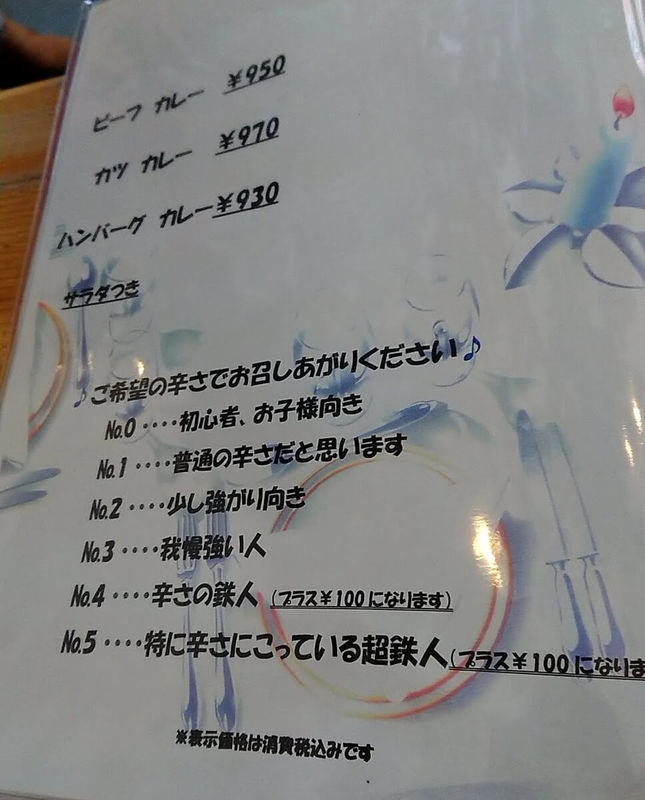 ビーフ カレー ¥950
カツ カレー ¥970
ハンバーグ カレー ¥930
サラダつき
♪ご希望の辛さでお召しあがりください♪
No.0 ････初心者、お子様向き
No.1 ････普通の辛さだと思います
No.2 ････少し強がり向き
No.3 ････我慢強い人
No.4 ････辛さの鉄人 (プラス¥100になります)
No.5 ････特に辛さにこっている超鉄人(プラス¥100になりま
※表示価格は消費税込みです